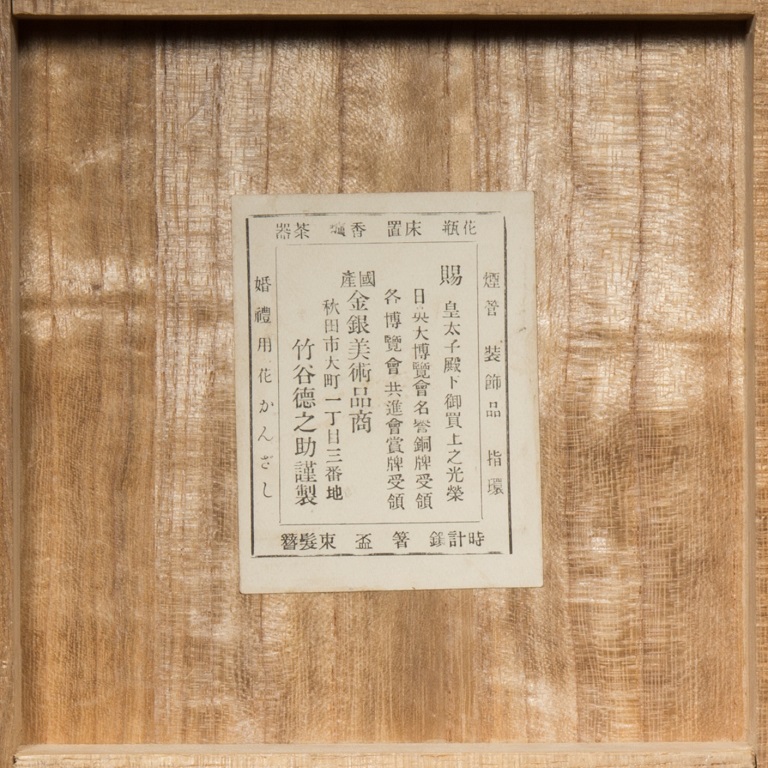 花瓶 床置 香爐 茶器
煙管 装飾品 指環
賜 皇太子殿下御買上之光榮
日英大博覽會名譽銅牌受領
各博覽會共進會賞牌受領
國產
金銀美術品商
秋田市大町一丁目三番地
竹谷德之助謹製
婚禮用花かんざし
時計鎖 箸 盃 束髮簪